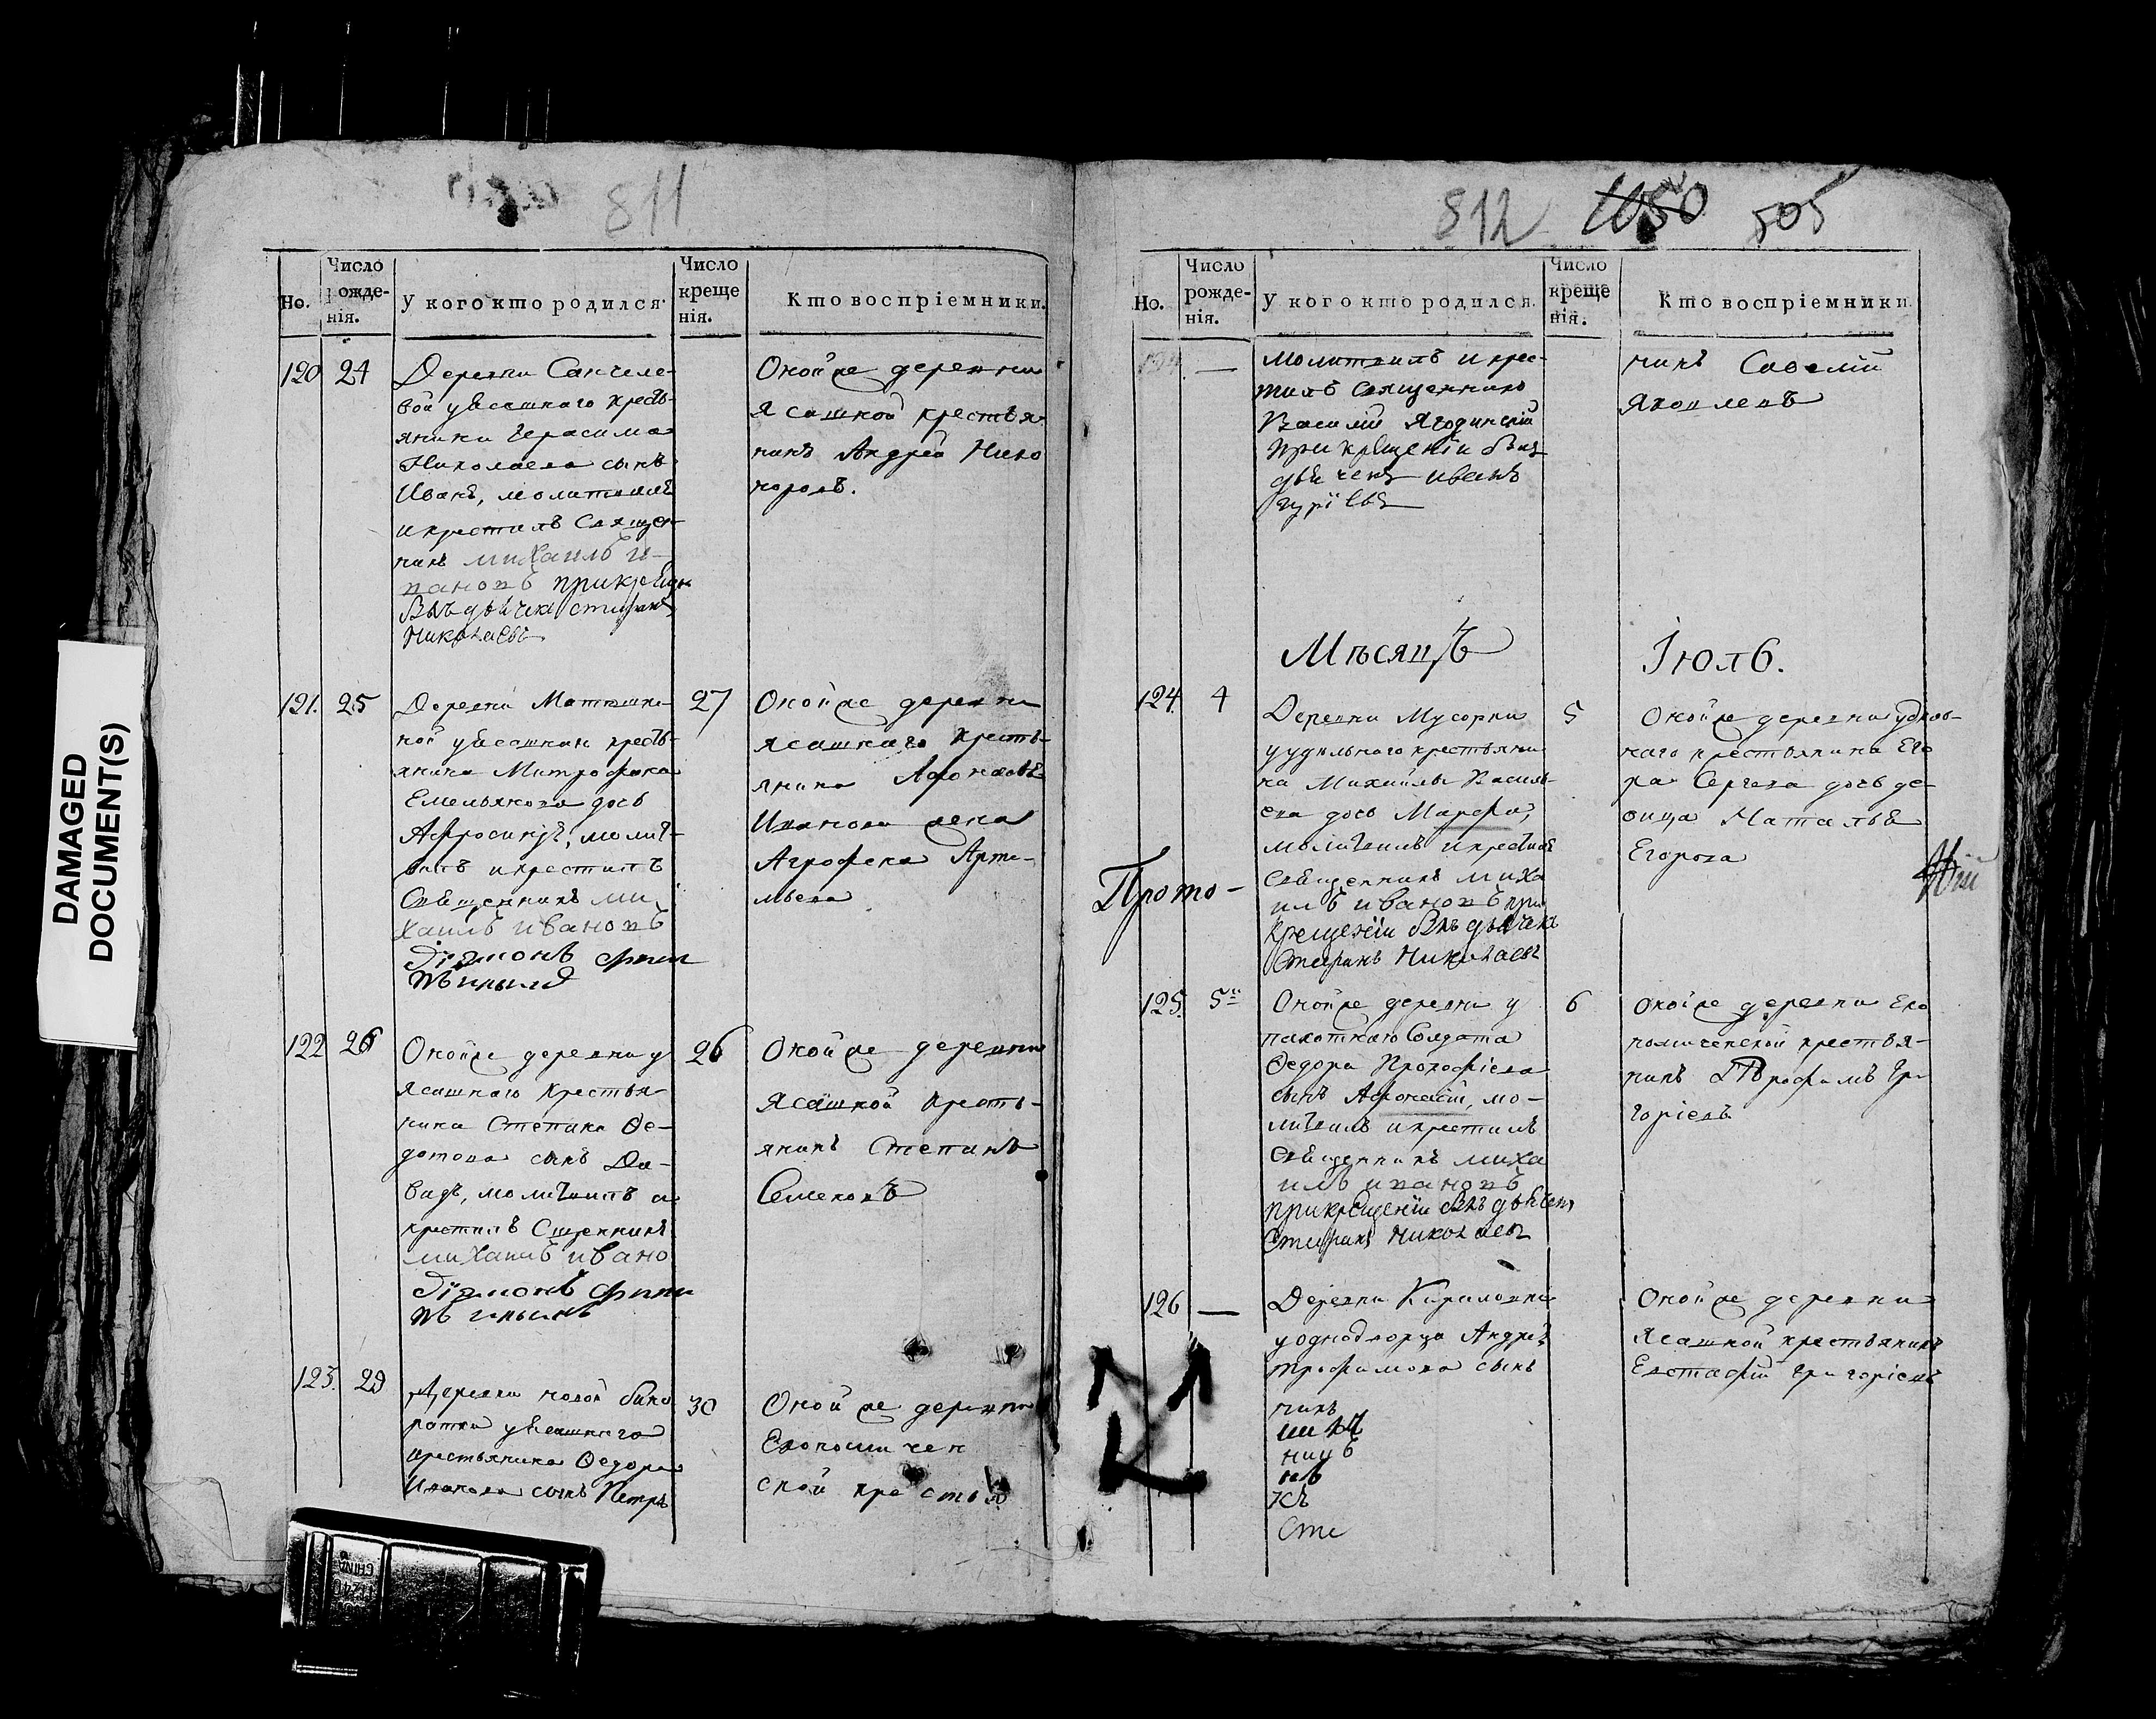 DAMAGED
DOCUMENT(S)
811
Но.
Число рожде-нія.
У кого кто родился.
Число креще нія.
Кто воспріемники.
120
24
Деревни Санчеле-
вой уясашнаго кресть-
янина Герасима
Николаева сынъ
Иванъ, молитвилъ
икрестилъ Священ-
никъ михаилъ и-
вановъ прикрещен
Николаевъ
Онойже деревни
ясашной крестья-
нинъ Андрей Ники
форовъ.
121.
25
Деревни Матюшки-
ной уясашнаго кресть-
янина Митрофана
Емельянова дочь
Афросинья, молит-
вилъ икрестилъ
Священникъ ми
хаилъ ивановъ
Діяконъ филип
27
Онойже деревни
ясашнаго кресть-
янина Афонасья
Иванова жена
Аграфена Арте-
мьева
122
26
Онойже деревни у
ясашнаго крестья-
нина Степана Фе-
дотова сынъ Да-
видъ, молитвилъ и
крестилъ Сщенникъ
михаилъ ивано
Діяконъ филип
26
Онойже деревни
ясашной кресть-
янинъ Степанъ
Семеновъ
123.
29
Деревни новой бина
ратки уясашнаго
крестьянина Федора
Иванова сынъ Петръ
30
Онойже деревни
Економичен
ской крестья
812 1050 505
Но.
Число рожде-нія.
У кого кто родился.
Число креще нія.
Кто воспріемники.
—
молитвилъ икрес-
тилъ Священникъ
Василій Ягодинскій
при крещеніи былъ
дьячекъ иванъ
гурієвъ
нинъ Савелій
Яковлевъ
Мѣсяцъ Іюль.
124.
4
Деревни Мусорки
уудѣльнаго крестьяни
на Михайлы Василь-
ева дочь Марфа,
молитвилъ икрестилъ
Священникъ миха
илъ ивановъ при
крещеніи былъ дьячекъ
Стефанъ Николаевъ
5
Онойже деревни удѣль-
наго крестьянина Его
ра Сергеева дочь де-
вица Наталья
Егорова
Прото-
125.
5й
Онойже деревни у
пахотнаго Солдата
Федора Прокофіева
сынъ Афонасій, мо-
литвилъ икрестилъ
Священникъ миха
илъ ивановъ
прикрещеніи былъ дьячекъ
Стефанъ Николаевъ
6
Онойже деревни Еко
номической крестья-
нинъ Трофимъ Гри
горіевъ
126
—
Деревни Кириловки
уоднодворца Андрея
Трофимова сынъ
никъ
ницъ
Сте
Онойже деревни
Ясашной крестьянинъ
Евстафій Григоріевъ